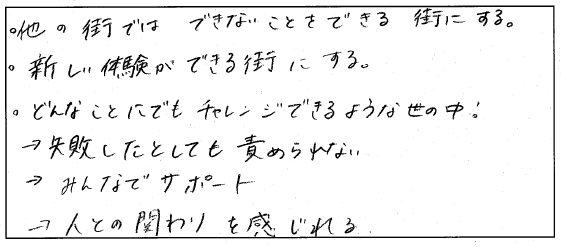 。他の街では できないことをできる 街にする。
。新しい体験ができる街にする。
。どんなことにでもチャレンジできるような世の中!
→失敗したとしても責められない
→ みんなでサポート
→ 人との関わりを感じれる